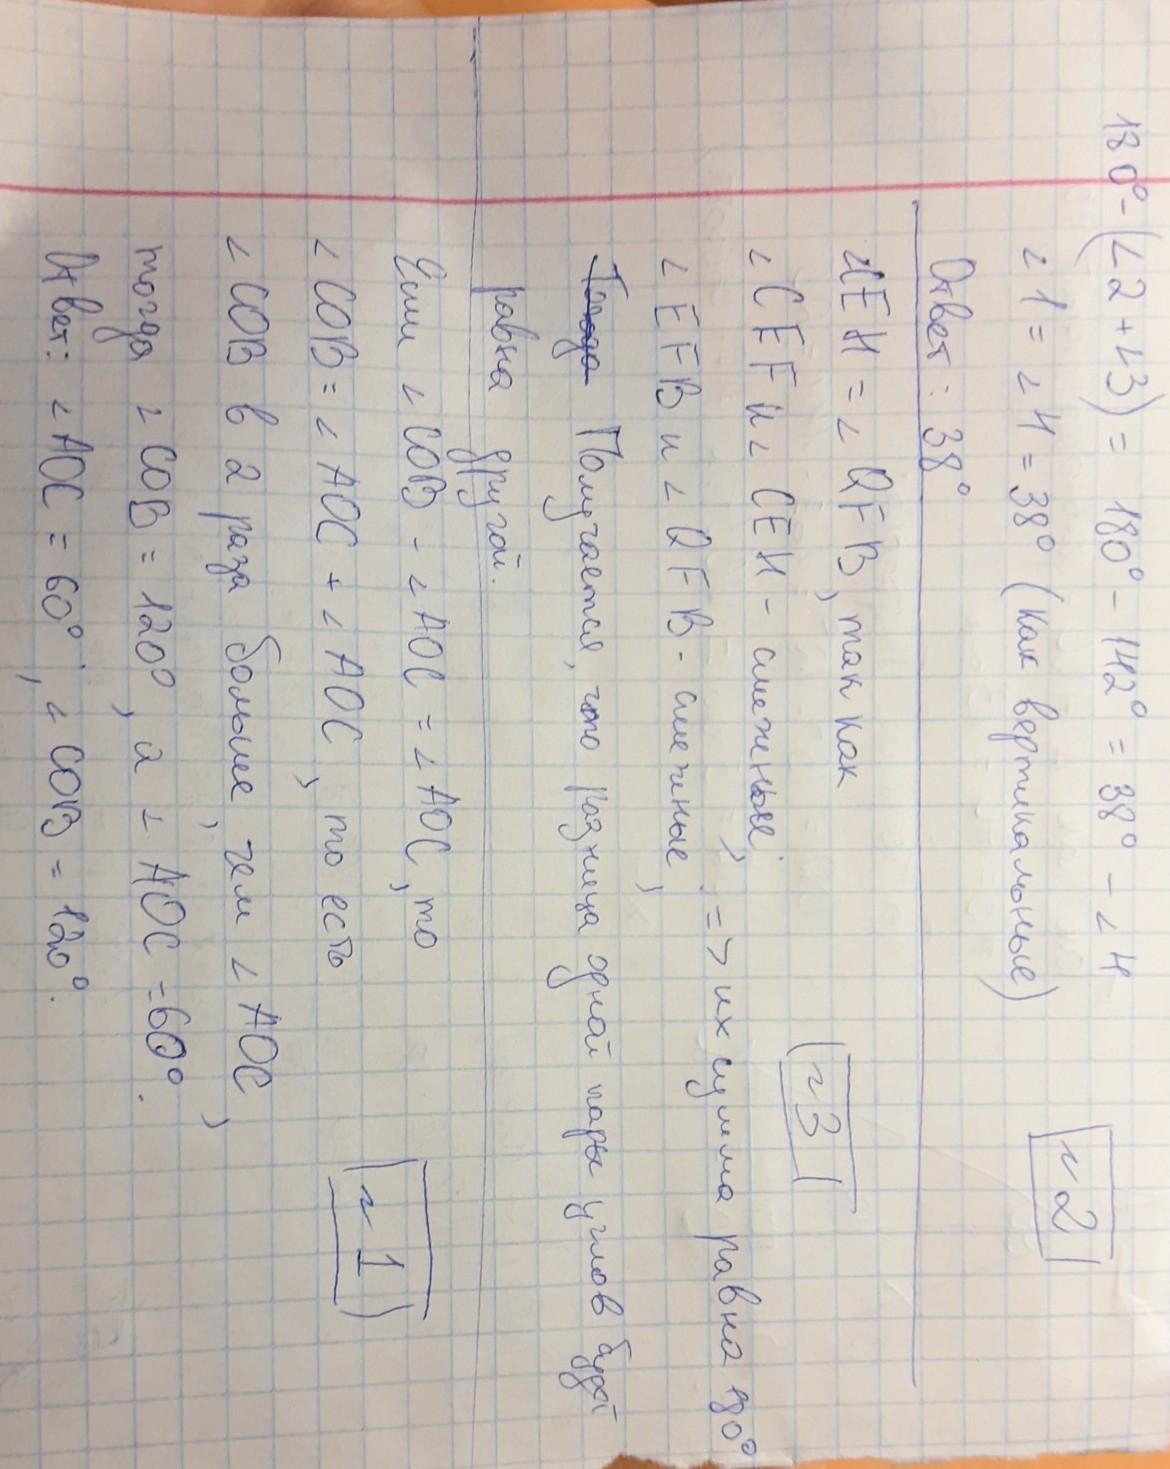 180° - (∠2 + ∠3) = 180° - 142° = 38° - ∠4
∠1 = ∠4 = 38° (как вертикальные)
№2
Ответ: 38°
∠CEH = ∠QFB, так как
№3
∠CEF и ∠CEH - смежные;
∠EFB и ∠QFB - смежные,
=> их сумма равна 180°
Тогда Получается, что разница одной пары углов будет
равна другой.
Если ∠COB - ∠AOC = ∠AOC, то
№1
∠COB = ∠AOC + ∠AOC, то есть
∠COB в 2 раза больше, чем ∠AOC,
тогда ∠COB = 120°, а ∠AOC = 60°.
Ответ: ∠AOC = 60°; ∠COB = 120°.